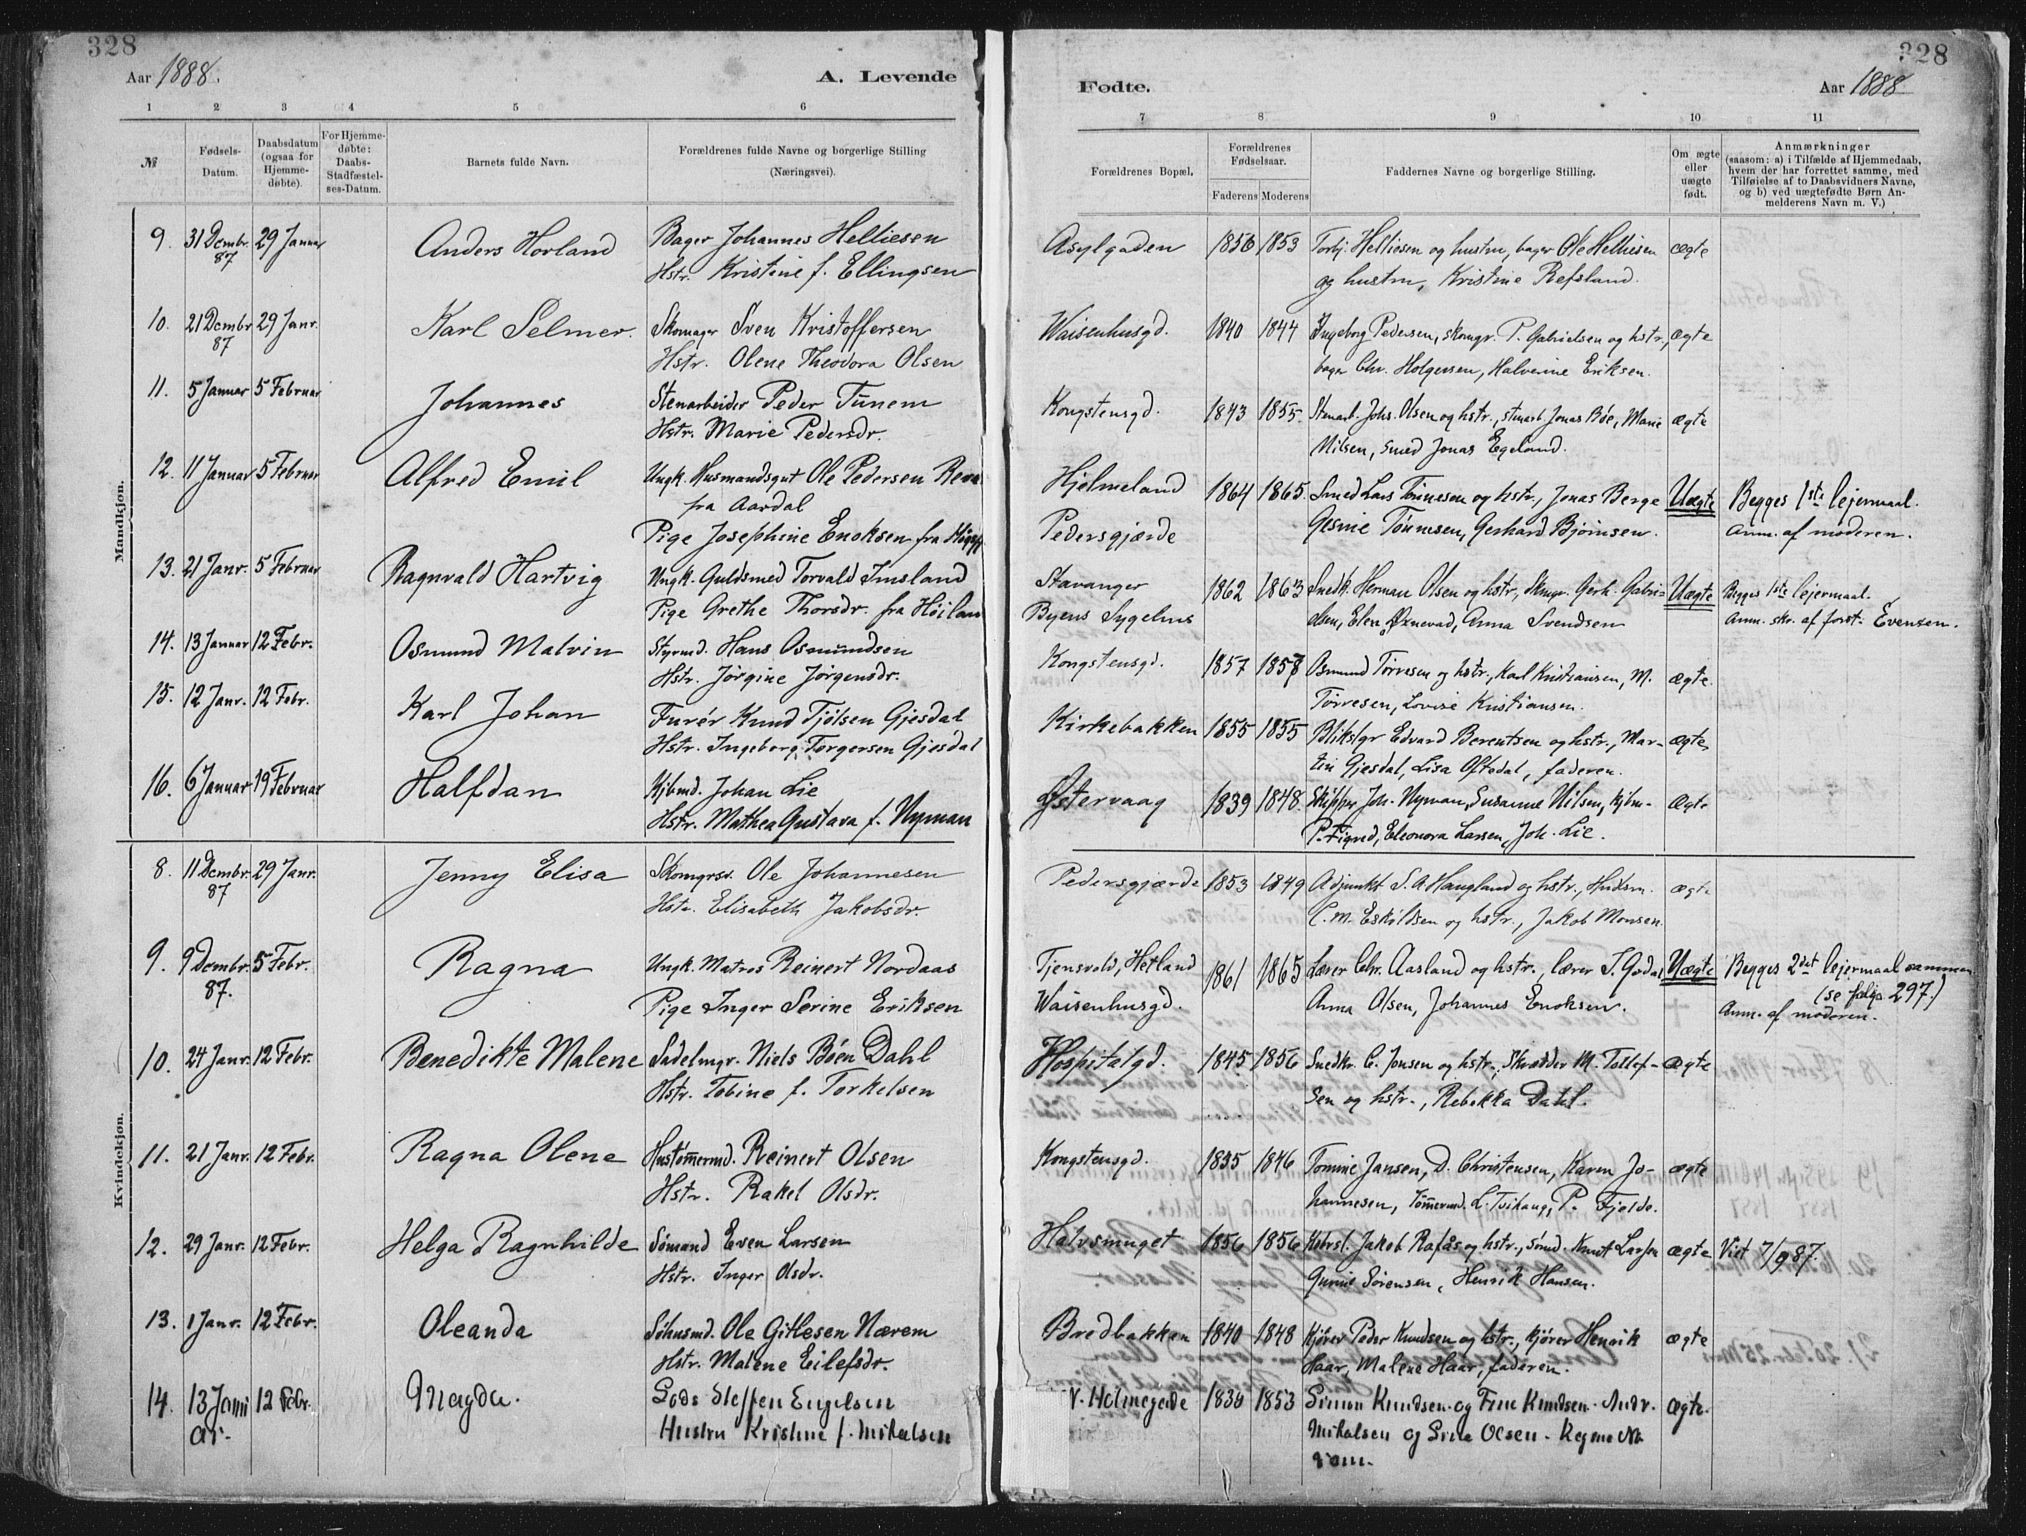 328
Aar 1888.
A. Levende
1 2 3 4 5 6
№
Fødsels-Datum.
Daabsdatum (ogsaa for Hjemmedøbte).
For Hjemmedøbte: Daabs-Stadfæstelses-Datum.
Barnets fulde Navn.
Forældrenes fulde Navne og borgerlige Stilling
(Næringsvei).
Mandkjøn.
9. 31 Dcmbr. 87 29 Januar Anders Horland Bager Johannes Helliesen
Hstr. Kristine f. Ellingsen
10. 21 Dcmbr 87 29 Janr. Karl Selmer. Skomager Sven Kristoffersen
Hstr. Olene Theodora Olsen
11. 5 Januar 5 Februar Johannes Stenarbeider Peder Tunem
Hstr. Marie Pedersdr.
12. 11 Januar 5 Februar Alfred Emil Ungk. Husmandsgut Ole Pedersen
fra Aardal
Pige Josephine Enoksen fra
13. 21 Janr. 5 Februar Ragnvald Hartvig Ungk. Guldsmed Torvald Imsland
Pige Grethe Thorsdr. fra Höiland
14. 13 Januar 12 Febr. Osmund Malvin Styrmd. Hans Osmundsen
Hstr. Jörgine Jörgensdr.
15. 12 Janr. 12 Febr. Karl Johan Furér Knud Tjölsen Gjesdal
Hstr. Ingeborg Torgersen Gjesdal
16. 6 Januar 19 Februar Halfdan Kjbmd. Johan Lie
Hstr. Mathea Gustava f. Nyman
Kvindekjøn.
8. 11 Dcmbr. 87 29 Janr. Jenny Elisa Skomgrsv. Ole Johannesen
Hstr. Elisabeth Jakobsdr.
9. 9 Dcmbr. 87. 5 Febr. Ragna Ungk. Matros Reinert Nordaas
Pige Inger Serine Eriksen
10. 24 Janr. 12 Febr. Benedikte Malene Sadelmgr. Niels Böen Dahl
Hstr. Tobine f. Torkelsen
11. 21 Janr. 12 Febr. Ragna Olene Hustömermd. Reinert Olsen
Hstr. Rakel Olsdr.
12. 29 Janr. 12 Febr. Helga Ragnhilde Sömand Even Larsen
Hstr. Inger Olsdr.
13. 1 Janr. 12 Febr. Oleanda Söhusmd. Ole Gitlesen Nærem
Hstr. Malene Eilefsdr.
14. 13 Januar 12 Febr. Magda. Lods Steffen Engelsen
Hustru Kristine f. Mikalsen
328
Fødte.
Aar 1888
7 8 9 10 11
Forældrenes Bopæl.
Forældrenes Fødselsaar.
Faderens Moderens
Faddernes Navne og borgerlige Stilling.
Om ægte eller uægte født.
Anmærkninger
(saasom: a) i Tilfælde af Hjemmedaab,
hvem der har forrettet samme, med
Tilføielse af to Daabsvidners Navne,
og b) ved uægtefødte Børn Anmelderens Navn m. V.)
Asylgaden 1856 1853 Torbj. Helliesen og hustru, bager Ole Helliesen ægte
og hustru, Kristine Refsland.
Waisenhusgd. 1840 1844 Ingeborg Pedersen, skomgr. P. Gabrielsen og hstr., ægte
bager Chr. Holgersen, Halverine Eriksen.
Kongstensgd. 1843 1855. Stenarb. Johs. Olsen og hstr., stenarb. Jonas Böe, Marie ægte
Nilsen, smed Jonas Egeland.
Hjelmeland 1864 1865. Smed Lars Tönnesen og hstr., Jonas Berge Uægte Begges 1ste lejermaal.
Pedersgjærde Gesine Tönnesen, Gerhard Björnsen. Anm. af moderen.
Stavanger 1862 1863 Snedk. Herman Olsen og hstr., Skmgr. Gerh. Gabri- Uægte Begges 1ste lejermaal.
Byens Sygehus olsen, Elen Oznevad, Anna Svendsen Anm. skr. af forst. Evensen.
Kongstensgd. 1857 1857 Osmund Torresen og hstr., Karl Kristiansen, M. ægte
Torresen, Lovise Kristiansen.
Kirkebakken 1855 1855 Blikslgr Edvard Berentsen og hstr., Mar- ægte
tin Gjesdal, Lisa Oftedal, faderen.
Østervaag 1839 1848. Skipper Joh. Nyman, Susanne Nilsen, kjbm. Ægte
P. Figved, Eleonora Larsen, Joh. Lie.
Pedersgjærde 1853 1849 Adjunkt S. A. Haugland og hstr., ægte
C. M. Eskildsen og hstr., Jakob Monsen
Tjensvold, Hetland 1861 1865 Lærer Chr. Aasland og hstr., lærer T. Godal Uægte Begges 2det lejermaal sammen
Waisenhusgd. Anna Olsen, Johannes Enoksen. (se følge 297.)
Anm. af moderen.
Hospitalgd. 1845 1856 Snedkr. C. Jonsen og hstr., Skrædder M. Tollef- ægte
sen og hstr., Rebekka Dahl.
Kongstensgd. 1835 1846 Tomine Jansen, D. Christensen, Karen Jo- ægte
hannesen, Tömermd. L. Tvihaug, P. Fjelde.
Halvsmuget 1856 1856 Jakob Rafås og hstr., sömd. Knut Larsen ægte Viet 7/9 87.
Gurine Sörensen, Henrik Hansen.
Bredbakken 1840 1848 Kjörer Peder Knudsen og hstr., kjörer Henrik ægte
Haar, Malene Haar, faderen.
N. Holmegade 1830 1853 Simon Knudsen og Fine Knudsen. Andr. ægte.
Mikalsen og Sine Olsen.